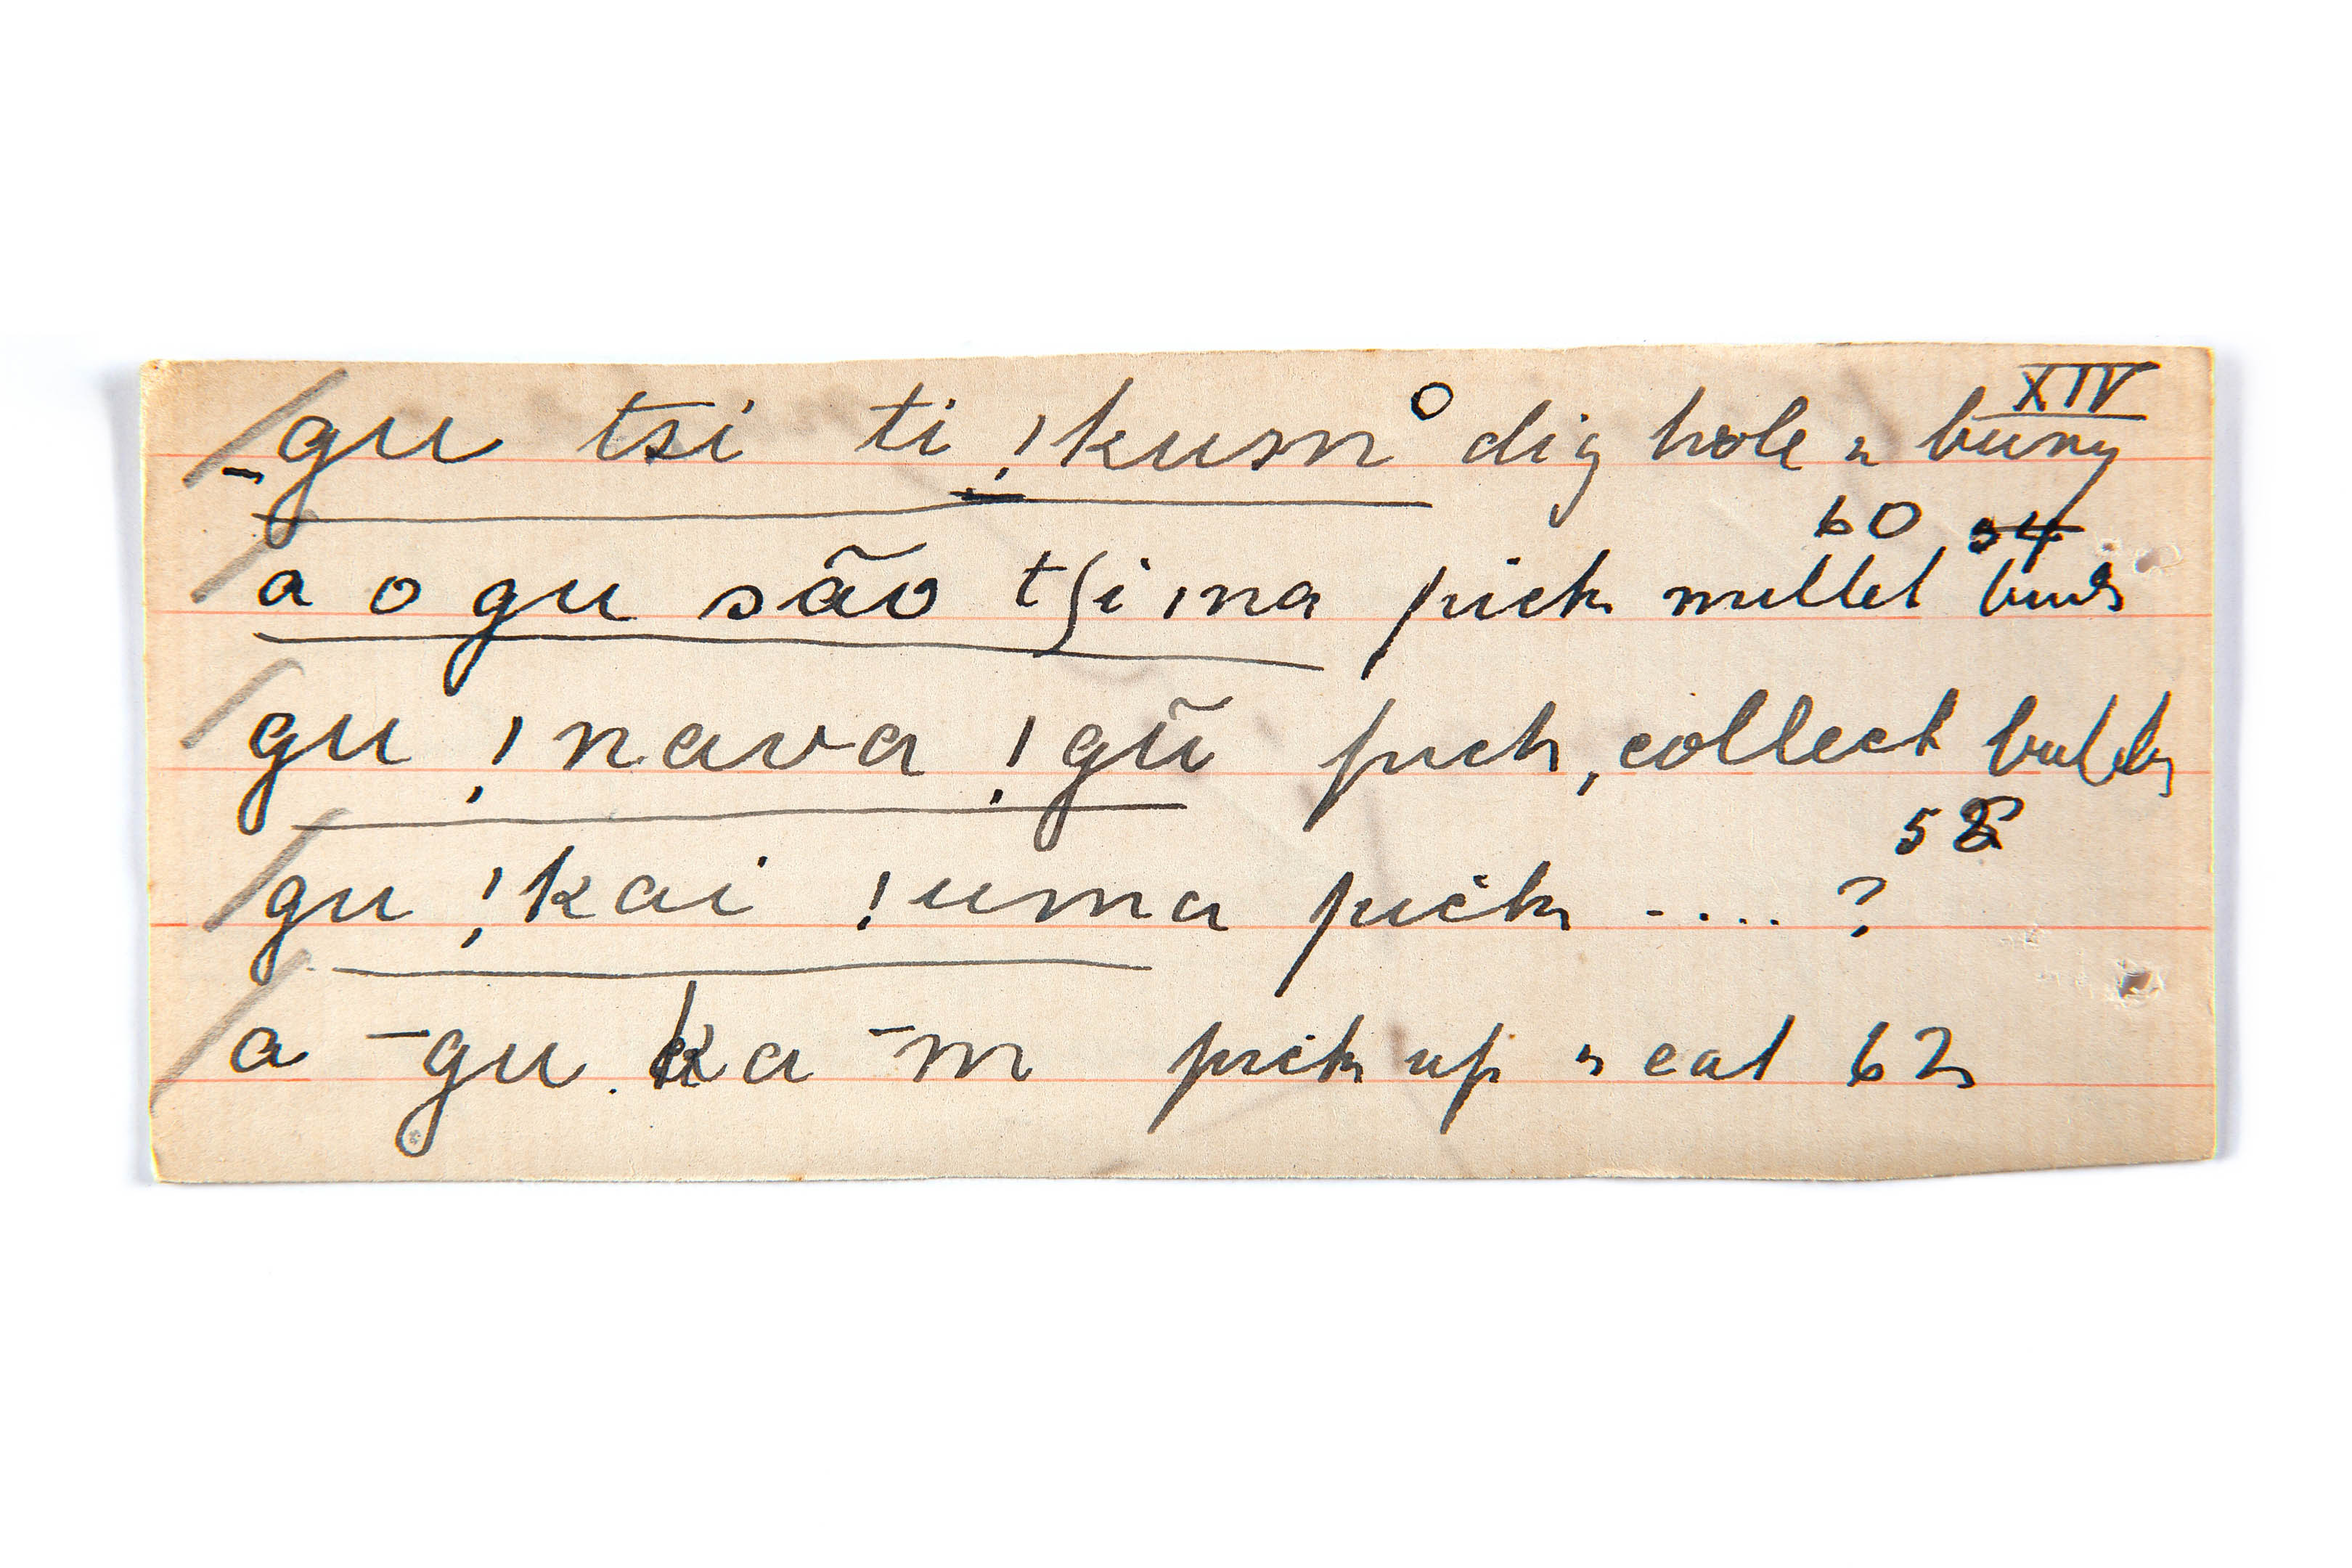 XIV
_gu tsi ti !kusn° dig hole & bury
60 54
a o gu são tʃi ına pick millet buds
gu !nava !gũ pick, collect bulbs
58
gu !kai !uma pick ....?
a ¯gu ka ¯m pick up & eat 62